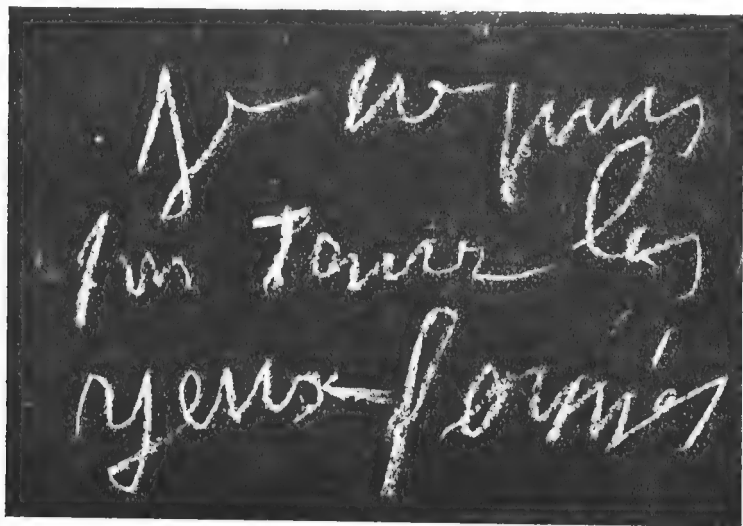 Je ne puis
pas Tenir les
yeux fermés